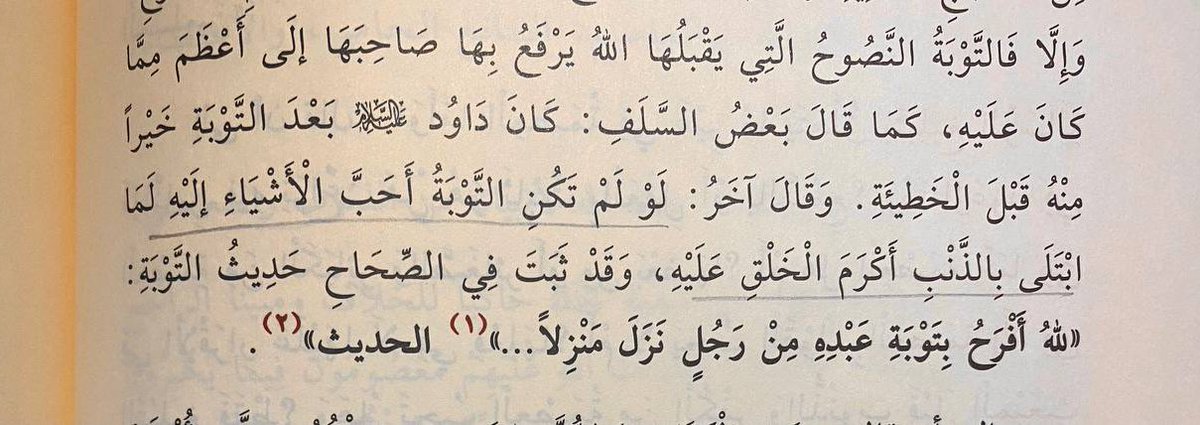 وَإِلَّا فَالتَّوْبَةُ النَّصُوحُ الَّتِي يَقْبَلُهَا اللهُ يَرْفَعُ بِهَا صَاحِبَهَا إلَى أَعْظَمَ مِمَّا
كَانَ عَلَيْهِ، كَمَا قَالَ بَعْضُ السَّلَفِ: كَانَ دَاوُد عَلَيْهِ السَّلَامُ بَعْدَ التَّوْبَةِ خَيْراً
مِنْهُ قَبْلَ الْخَطِيئَةِ. وَقَالَ آخَرُ: لَوْ لَمْ تَكُنِ التَّوْبَةُ أَحَبَّ الْأَشْيَاءِ إلَيْهِ لَمَا
ابْتَلَى بِالذَّنْبِ أَكْرَمَ الْخَلْقِ عَلَيْهِ، وَقَدْ ثَبَتَ فِي الصِّحَاحِ حَدِيثُ التَّوْبَةِ:
«للهُ أَفْرَحُ بِتَوْبَةِ عَبْدِهِ مِنْ رَجُلٍ نَزَلَ مَنْزِلاً...»(١) الحديث»(٢).